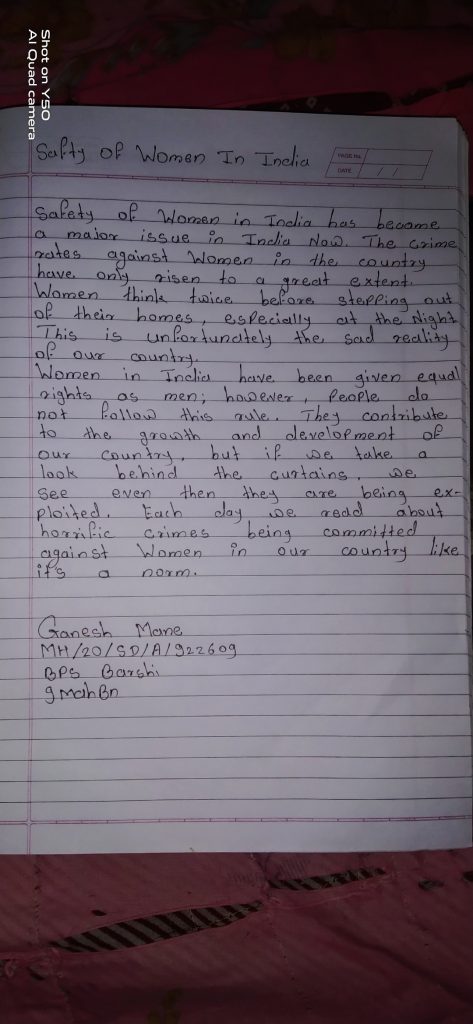 Shot on Y50
AI Quad camera
Safty of Women In India
PAGE No.
DATE / /
Safety of Women in India has become
a major issue in India Now. The crime
rates against Women in the country
have only risen to a great extent.
Women think twice before stepping out
of their homes, especially at the Night
This is unfortunately the sad reality
of our country.
Women in India have been given equal
rights as men; however, People do
not follow this rule. They contribute
to the growth and development of
our country, but if we take a
look behind the curtains, we
see even then they are being ex-
ploited. Each day we read about
horrific crimes being committed
against Women in our country like
it's a norm.
Ganesh Mane
MH/20/SD/A/922609
BPS Barshi
9 Mah Bn